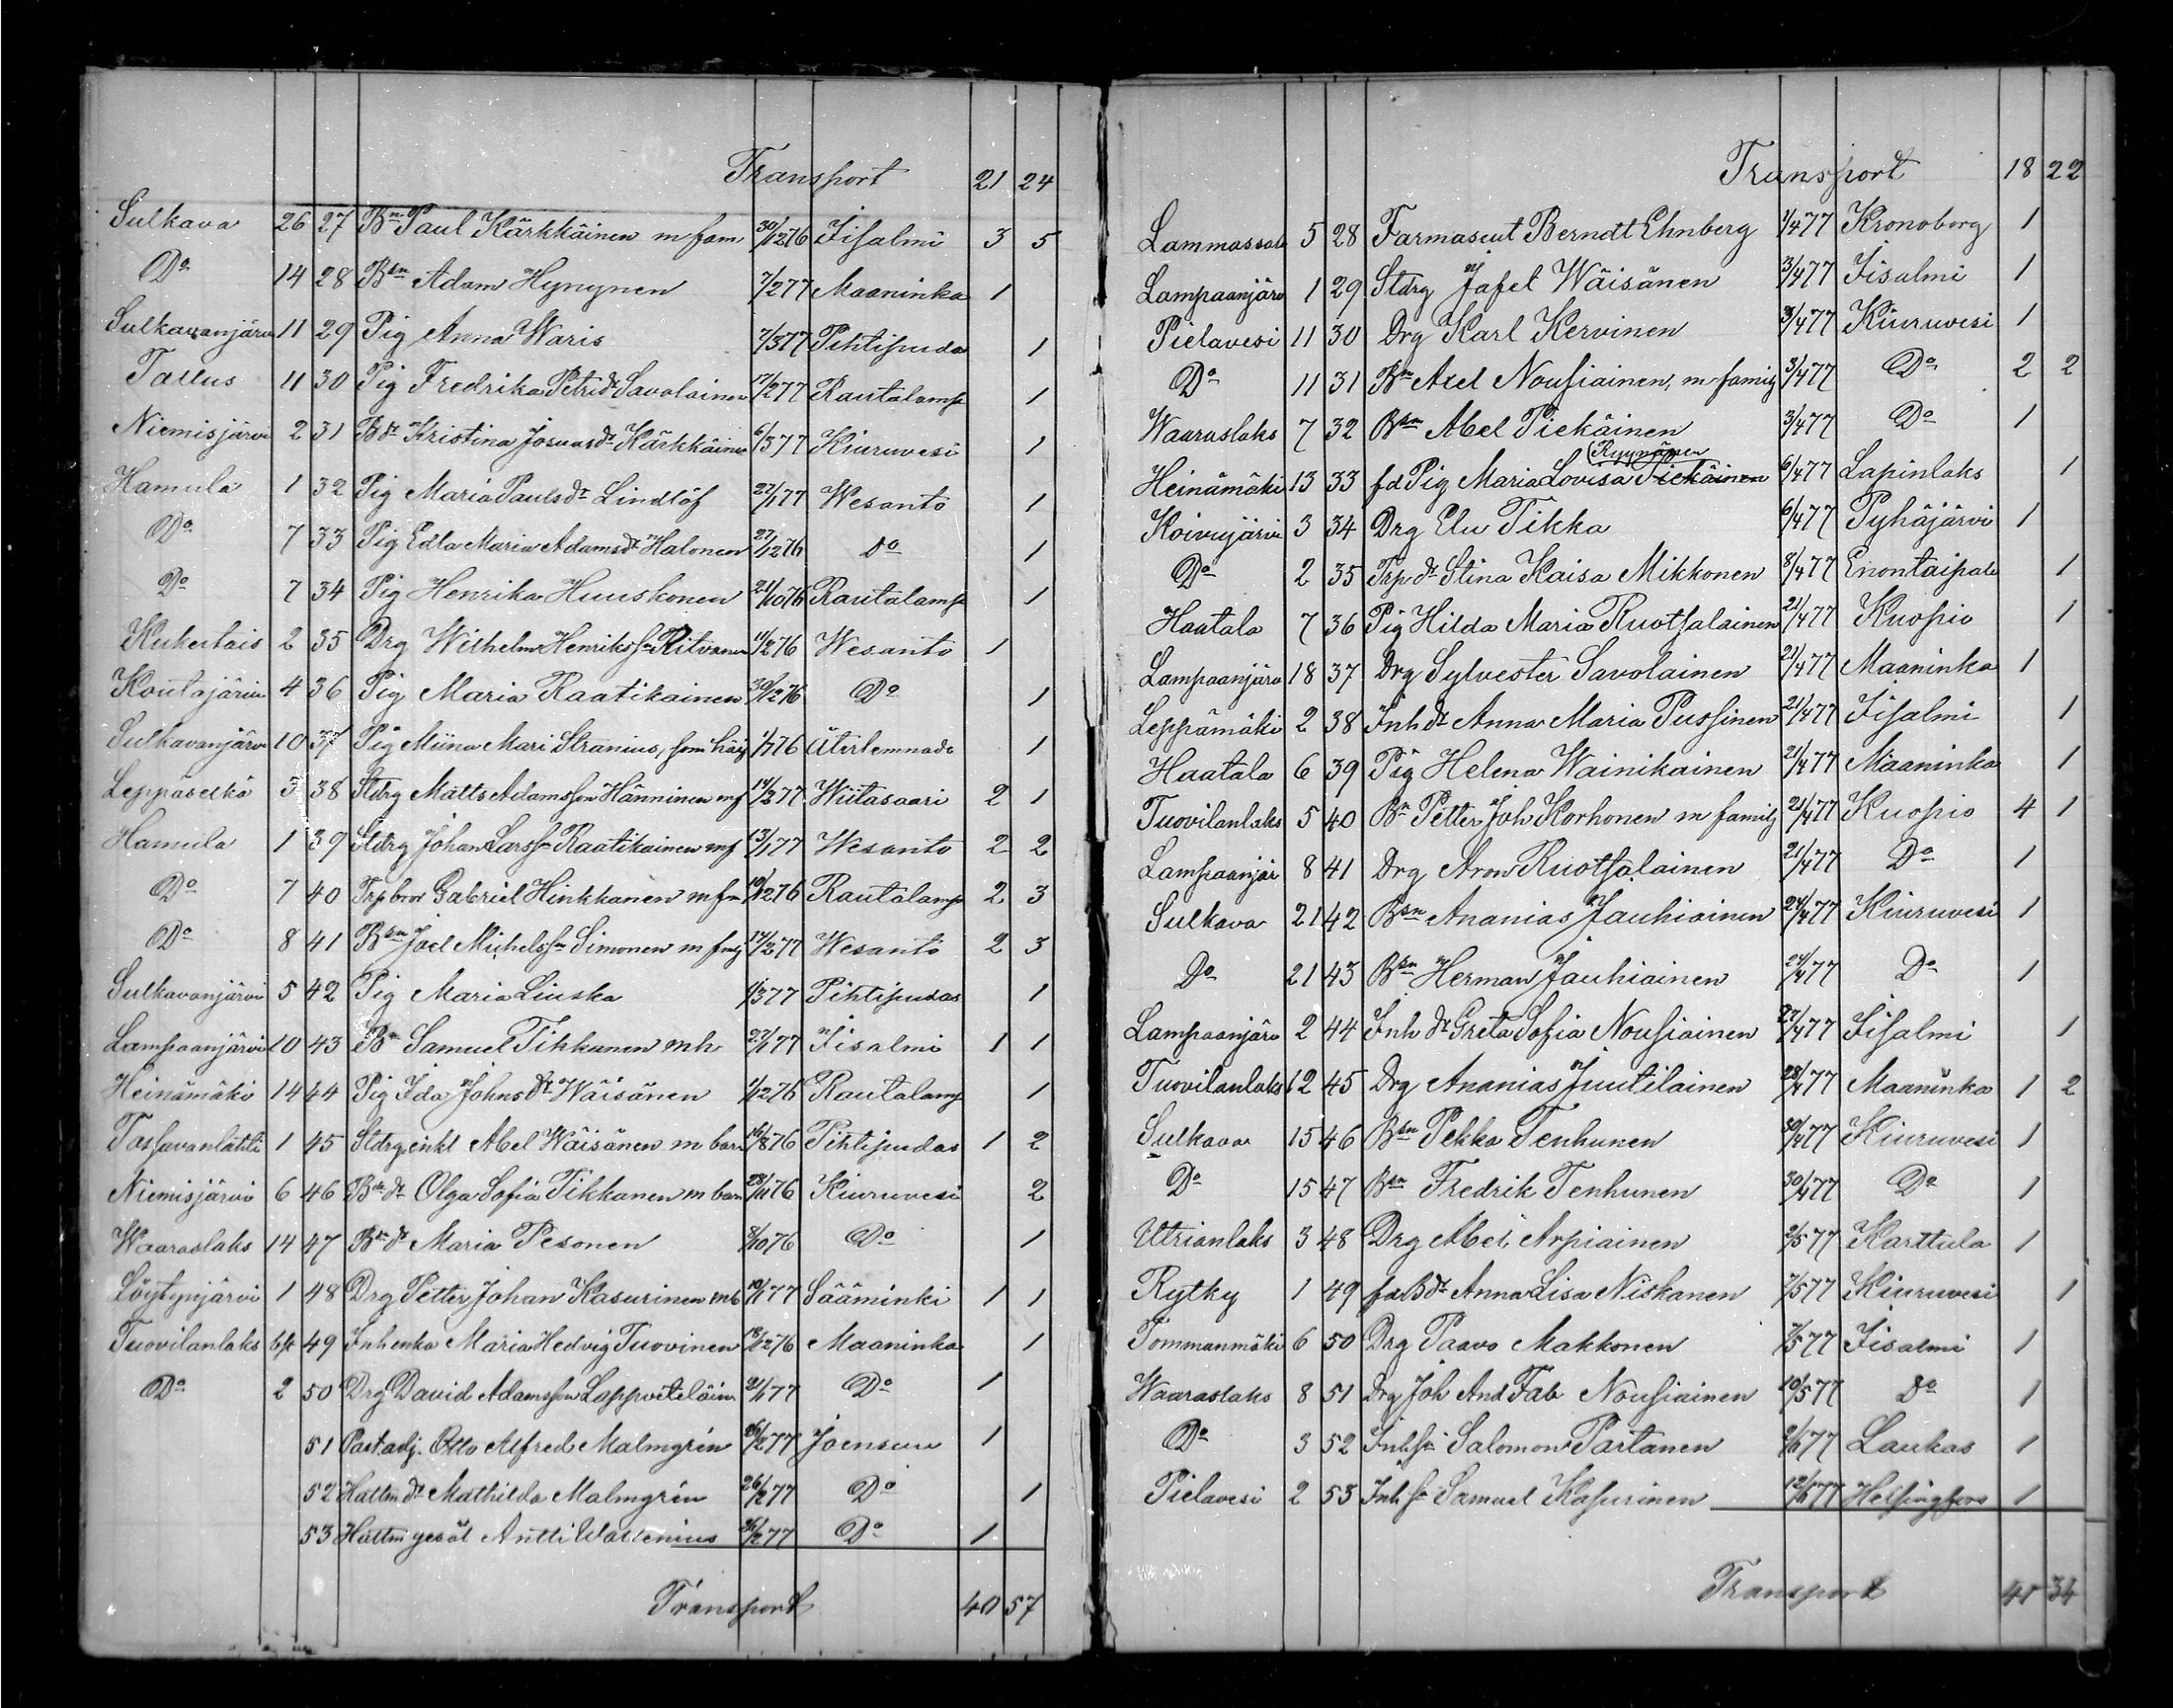 Transport 21 24
Sulkava 26 27 Bn Paul Kärkkäinen m fam 30/1276 Jisalmi 3 5
Do 14 28 Bsn Adam Hynynen 7/277 Maaninka 1
Sulkavanjärvi 11 29 Pig Anna Waris 7/377 Pihtipuda 1
Tallus 11 30 Pig Fredrika Petridr Savolainen 17/277 Rautalamp 1
Niemisjärvi 2 31 Bdr Kristina Josuasdr Kärkkäinen 6/377 Kiuruvesi 1
Hamula 1 32 Pig Maria Paulsdr Lindlöf 27/177 Wesanto 1
Do 7 33 Pig Edla Maria Adamsdr Halonen 27/1276 do 1
Do 7 34 Pig Henrika Huuskonen 21/1076 Rautalamp 1
Kukertais 2 35 Drg Wilhelm Henrikssn Ritvanen 11/276 Wesanto 1
Koutajärvi 4 36 Pig Maria Raatikainen 30/1276 Do 1
Sulkavanjärvi 10 37 Pig Miina Mari Stranius, som häij 1/176 Återlemnade 1
Leppäselkä 3 38 Stdrg Matts Adamsson Hänninen mf 14/277 Wiitasaari 2 1
Hamula 1 39 Stdrg Johan Larssn Raatikainen mf 13/177 Wesanto 2 2
Do 7 40 Trpbror Gabriel Hinkkanen m fm 19/1276 Rautalamp 2 3
Do 8 41 Bsn Joel Michelssn Simonen m fmj 14/277 Wesanto 2 3
Sulkavanjärvi 5 42 Pig Maria Liuska 1/377 Pihtipudas 1
Lampaanjärvi 10 43 Bn Samuel Tikkanen mh 27/177 Jisalmi 1 1
Heinämäki 14 44 Pig Ida Johnsdr Wäisänen 1/1276 Rautalamp 1
Tossavanlahti 1 45 Stdrg enkl Abel Wäisänen m barn 16/876 Pihtipudas 1 2
Niemisjärvi 6 46 Bdr Olga Sofia Tikkanen m barn 28/1176 Kiuruvesi 2
Waaraslaks 14 47 Bndr Maria Pesonen 8/1076 Do 1
Löytynjärvi 1 48 Drg Petter Johan Kasurinen mh 10/177 Sääminki 1 1
Tuovilanlaks bst 49 Inhenka Maria Hedvig Tuovinen 18/1276 Maaninka 1
Do 2 50 Drg David Adamsson Lappveteläin 21/177 Do 1
51 Past.adj. Otto Alfred Malmgrén 26/277 Joensuu 1
52 Hattmdr Mathilda Malmgrén 26/277 Do 1
53 Hattm gesäl Antti Wallenius 26/277 Do 1
Transport 40 57
Transport 18 22
Lammassalo 5 28 Farmaseut Berndt Ehnberg 1/477 Kronoborg 1
Lampaanjärv 1 29 Stdrg Jafet Wäisänen 3/477 Jisalmi 1
Pielavesi 11 30 Drg Karl Kervinen 3/477 Kiuruvesi 1
Do 11 31 Bn Axel Nousiainen, m familj 3/477 Do 2 2
Waaraslaks 7 32 Bsn Abel Tiekäinen 3/477 Do 1
(Ryynänen
Heinämäki 13 33 fd Pig Maria Lovisa Tiekäinen 6/477 Lapinlaks 1
Koivujärvi 3 34 Drg Elu Tikka 6/477 Pyhäjärvi 1
Do 2 35 Trp dr Stina Kaisa Mikkonen 8/477 Enontaipale 1
Haatala 7 36 Pig Hilda Maria Ruotsalainen 21/477 Kuopio 1
Lampaanjärv 18 37 Drg Sylvester Savolainen 21/477 Maaninka 1
Leppämäki 2 38 Inh dr Anna Maria Pussinen 21/477 Jisalmi 1
Haatala 6 39 Pig Helena Wainikainen 21/477 Maaninka 1
Tuovilanlaks 5 40 Bn Petter Joh Korhonen m familj 21/477 Kuopio 4 1
Lampaanjär 8 41 Drg Aron Ruotsalainen 21/477 Do 1
Sulkava 21 42 Bsn Ananias Jauhiainen 24/477 Kiuruvesi 1
Do 21 43 Bsn Herman Jauhiainen 24/477 Do 1
Lampaanjärv 2 44 Inh dr Greta Sofia Nousiainen 27/477 Jisalmi 1
Tuovilanlaks 12 45 Drg Ananias Juutilainen 28/477 Maaninka 1 2
Sulkava 15 46 Bsn Pekka Tenhunen 30/477 Kiuruvesi 1
Do 15 47 Bsn Fredrik Tenhunen 30/477 Do 1
Utrianlaks 3 48 Drg Abel Arpiainen 2/577 Karttula 1
Rytky 1 49 fd Bdr Anna Lisa Niskanen 7/577 Kiuruvesi 1
Tommanmäki 6 50 Drg Paavo Makkonen 7/577 Jisalmi 1
Waaraslaks 8 51 Drg Joh And Fab Nousiainen 10/577 Do 1
Do 3 52 Inhsn Salomon Partanen 2/677 Laukas 1
Pielavesi 2 53 Inh sn Samuel Kasurinen 12/677 Helsingfors 1
Transport 41 34